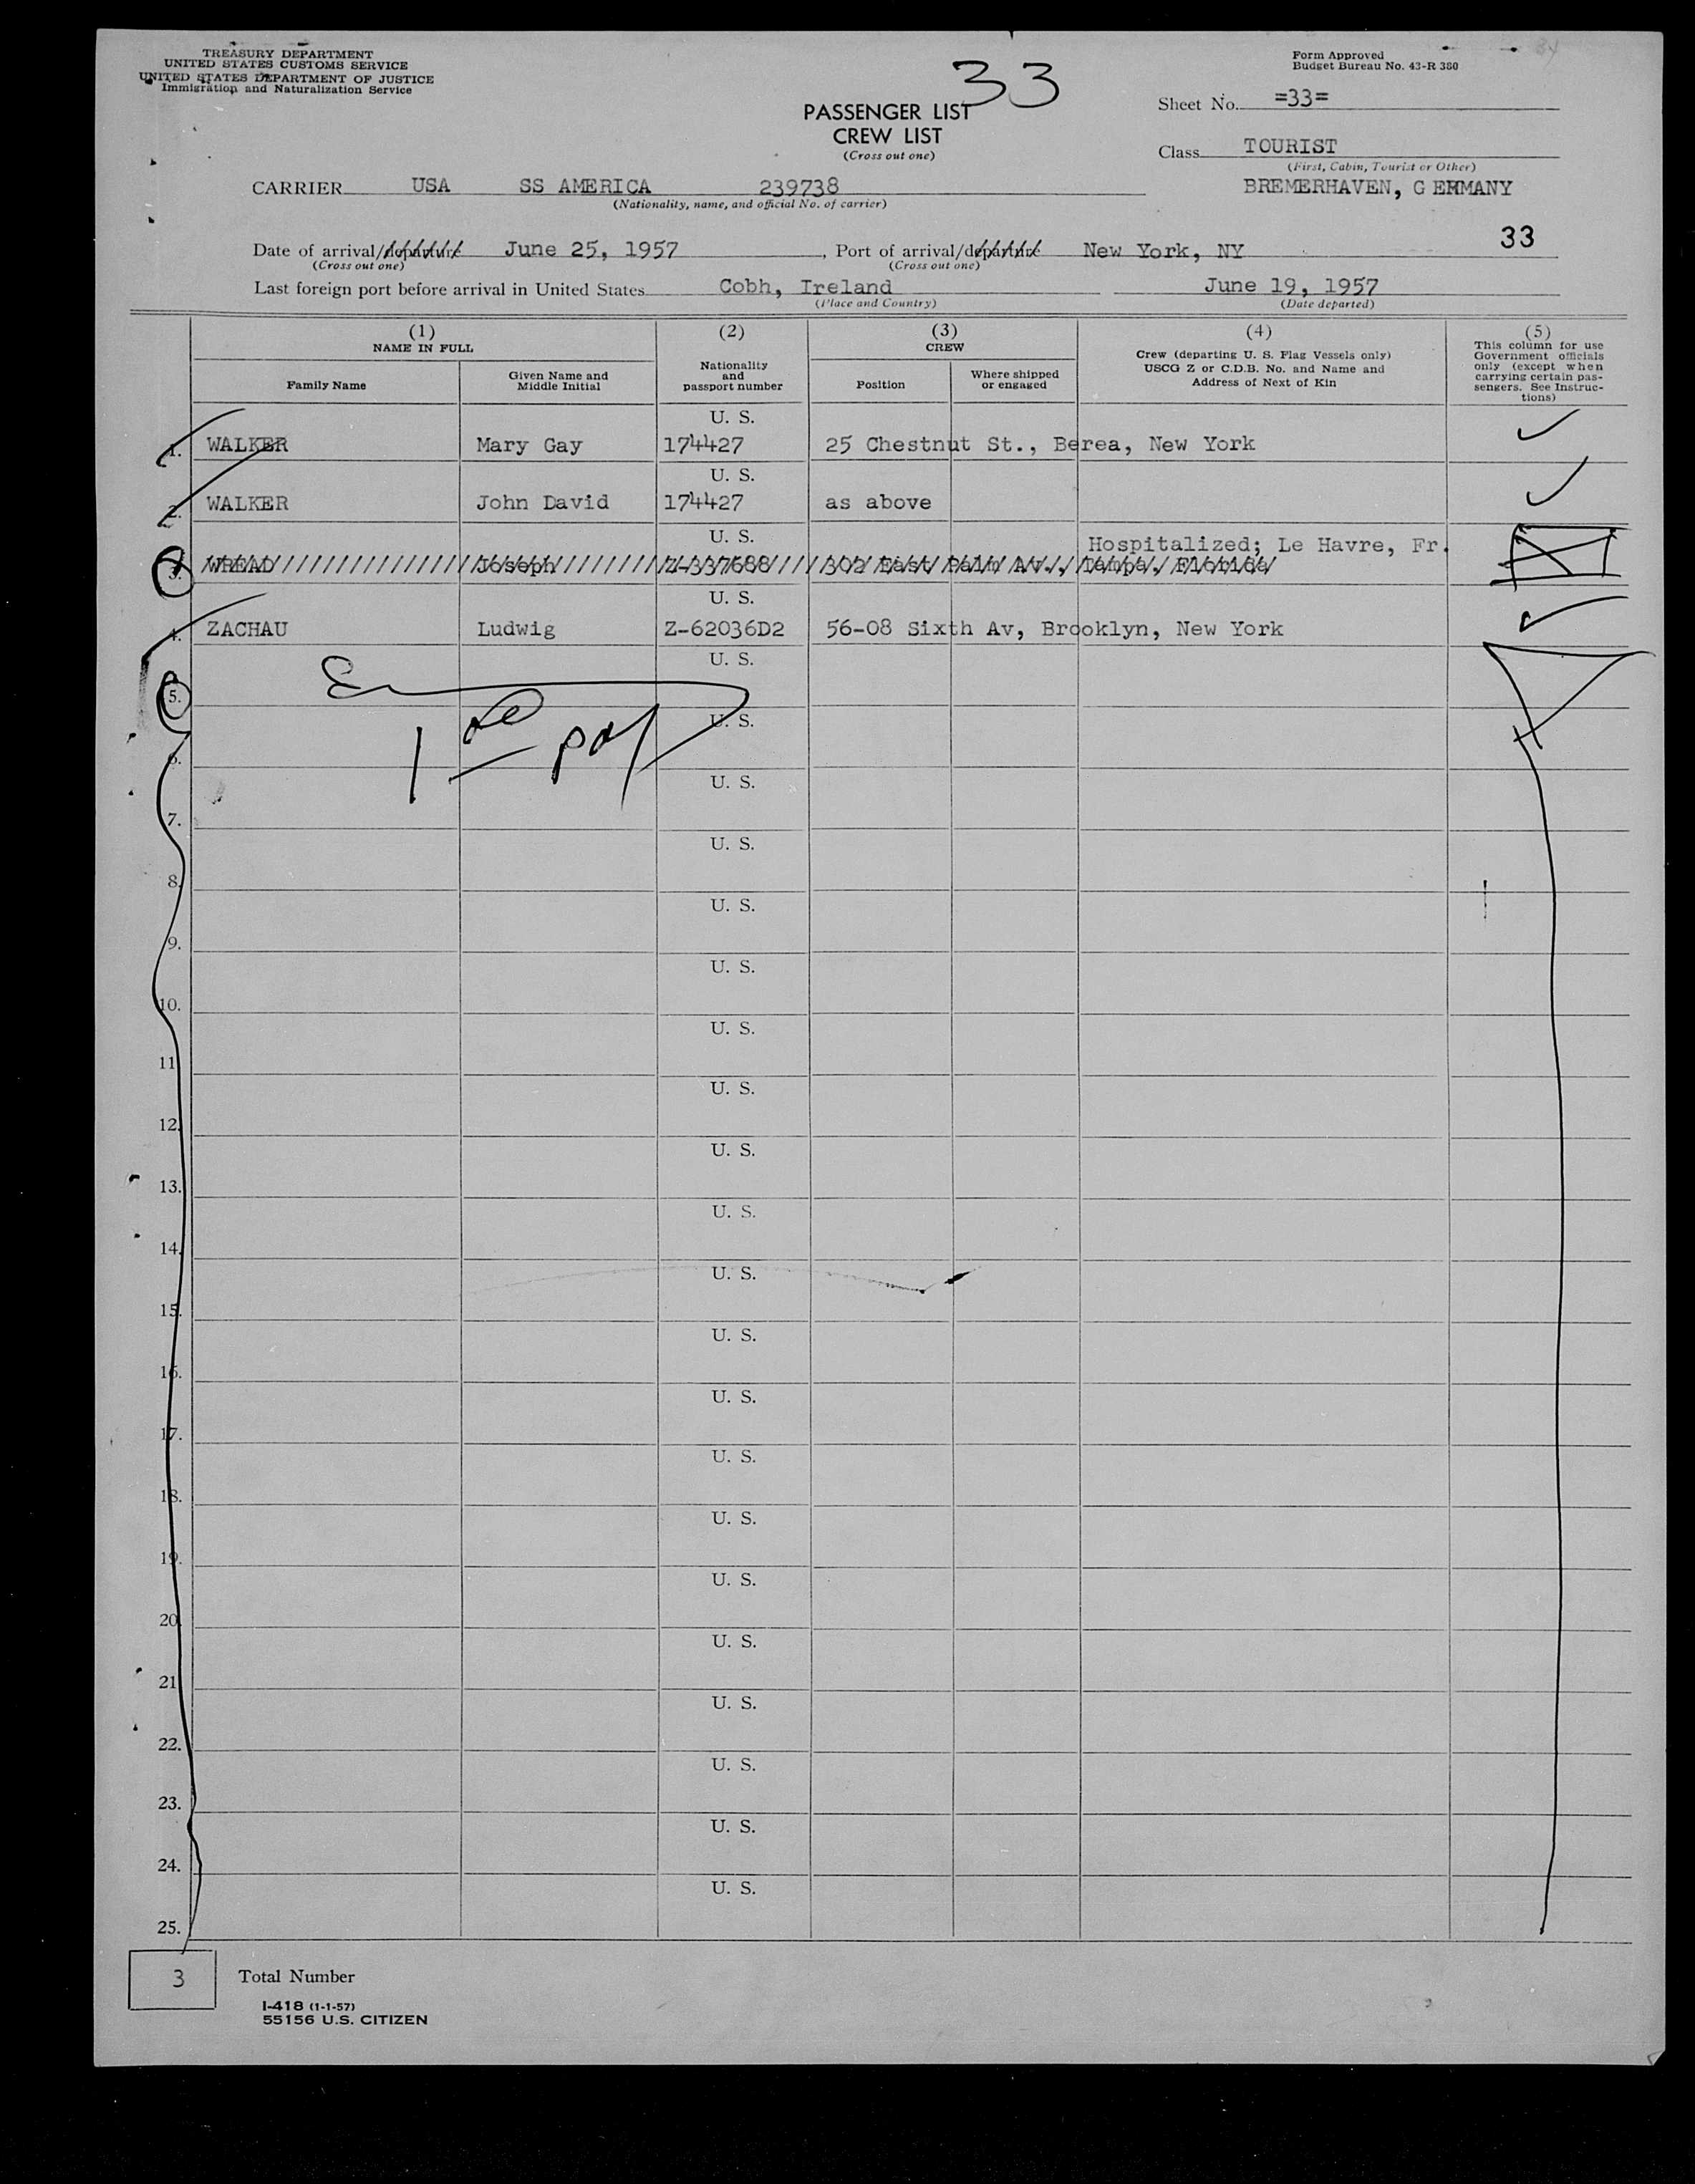 TREASURY DEPARTMENT
UNITED STATES CUSTOMS SERVICE
UNITED STATES DEPARTMENT OF JUSTICE
Immigration and Naturalization Service
Form Approved
Budget Bureau No. 43-R 380
33
PASSENGER LIST
CREW LIST
(Cross out one)
Sheet No. =33=
Class TOURIST
(First, Cabin, Tourist or Other)
CARRIER USA SS AMERICA 239738
(Nationality, name, and official No. of carrier)
BREMERHAVEN, G ERMANY
33
Date of arrival/departure June 25, 1957, Port of arrival/departure New York, NY
(Cross out one) (Cross out one)
Last foreign port before arrival in United States Cobh, Ireland June 19, 1957
(Place and Country) (Date departed)
(1) (2) (3) (4) (5)
NAME IN FULL
Family Name
Given Name and Middle Initial
Nationality and passport number
CREW
Position
Where shipped or engaged
Crew (departing U. S. Flag Vessels only)
USCG Z or C.D.B. No. and Name and
Address of Next of Kin
This column for use
Government officials
only (except when
carrying certain pas-
sengers. See Instruc-
tions)
U. S.
1. WALKER Mary Gay 174427 25 Chestnut St., Berea, New York
U. S.
2. WALKER John David 174427 as above
U. S. Hospitalized; Le Havre, Fr.
3. Joseph Z-337688 302 East Palm Av., Tampa, Florida
U. S.
4. ZACHAU Ludwig Z-62036D2 56-08 Sixth Av, Brooklyn, New York
U. S.
5.
U. S.
6.
U. S.
7.
U. S.
8.
U. S.
9.
U. S.
10.
U. S.
11.
U. S.
12.
U. S.
13.
U. S.
14.
U. S.
15.
U. S.
16.
U. S.
17.
U. S.
18.
U. S.
19.
U. S.
20.
U. S.
21.
U. S.
22.
U. S.
23.
U. S.
24.
U. S.
25.
3 Total Number
I-418 (1-1-57)
55156 U.S. CITIZEN